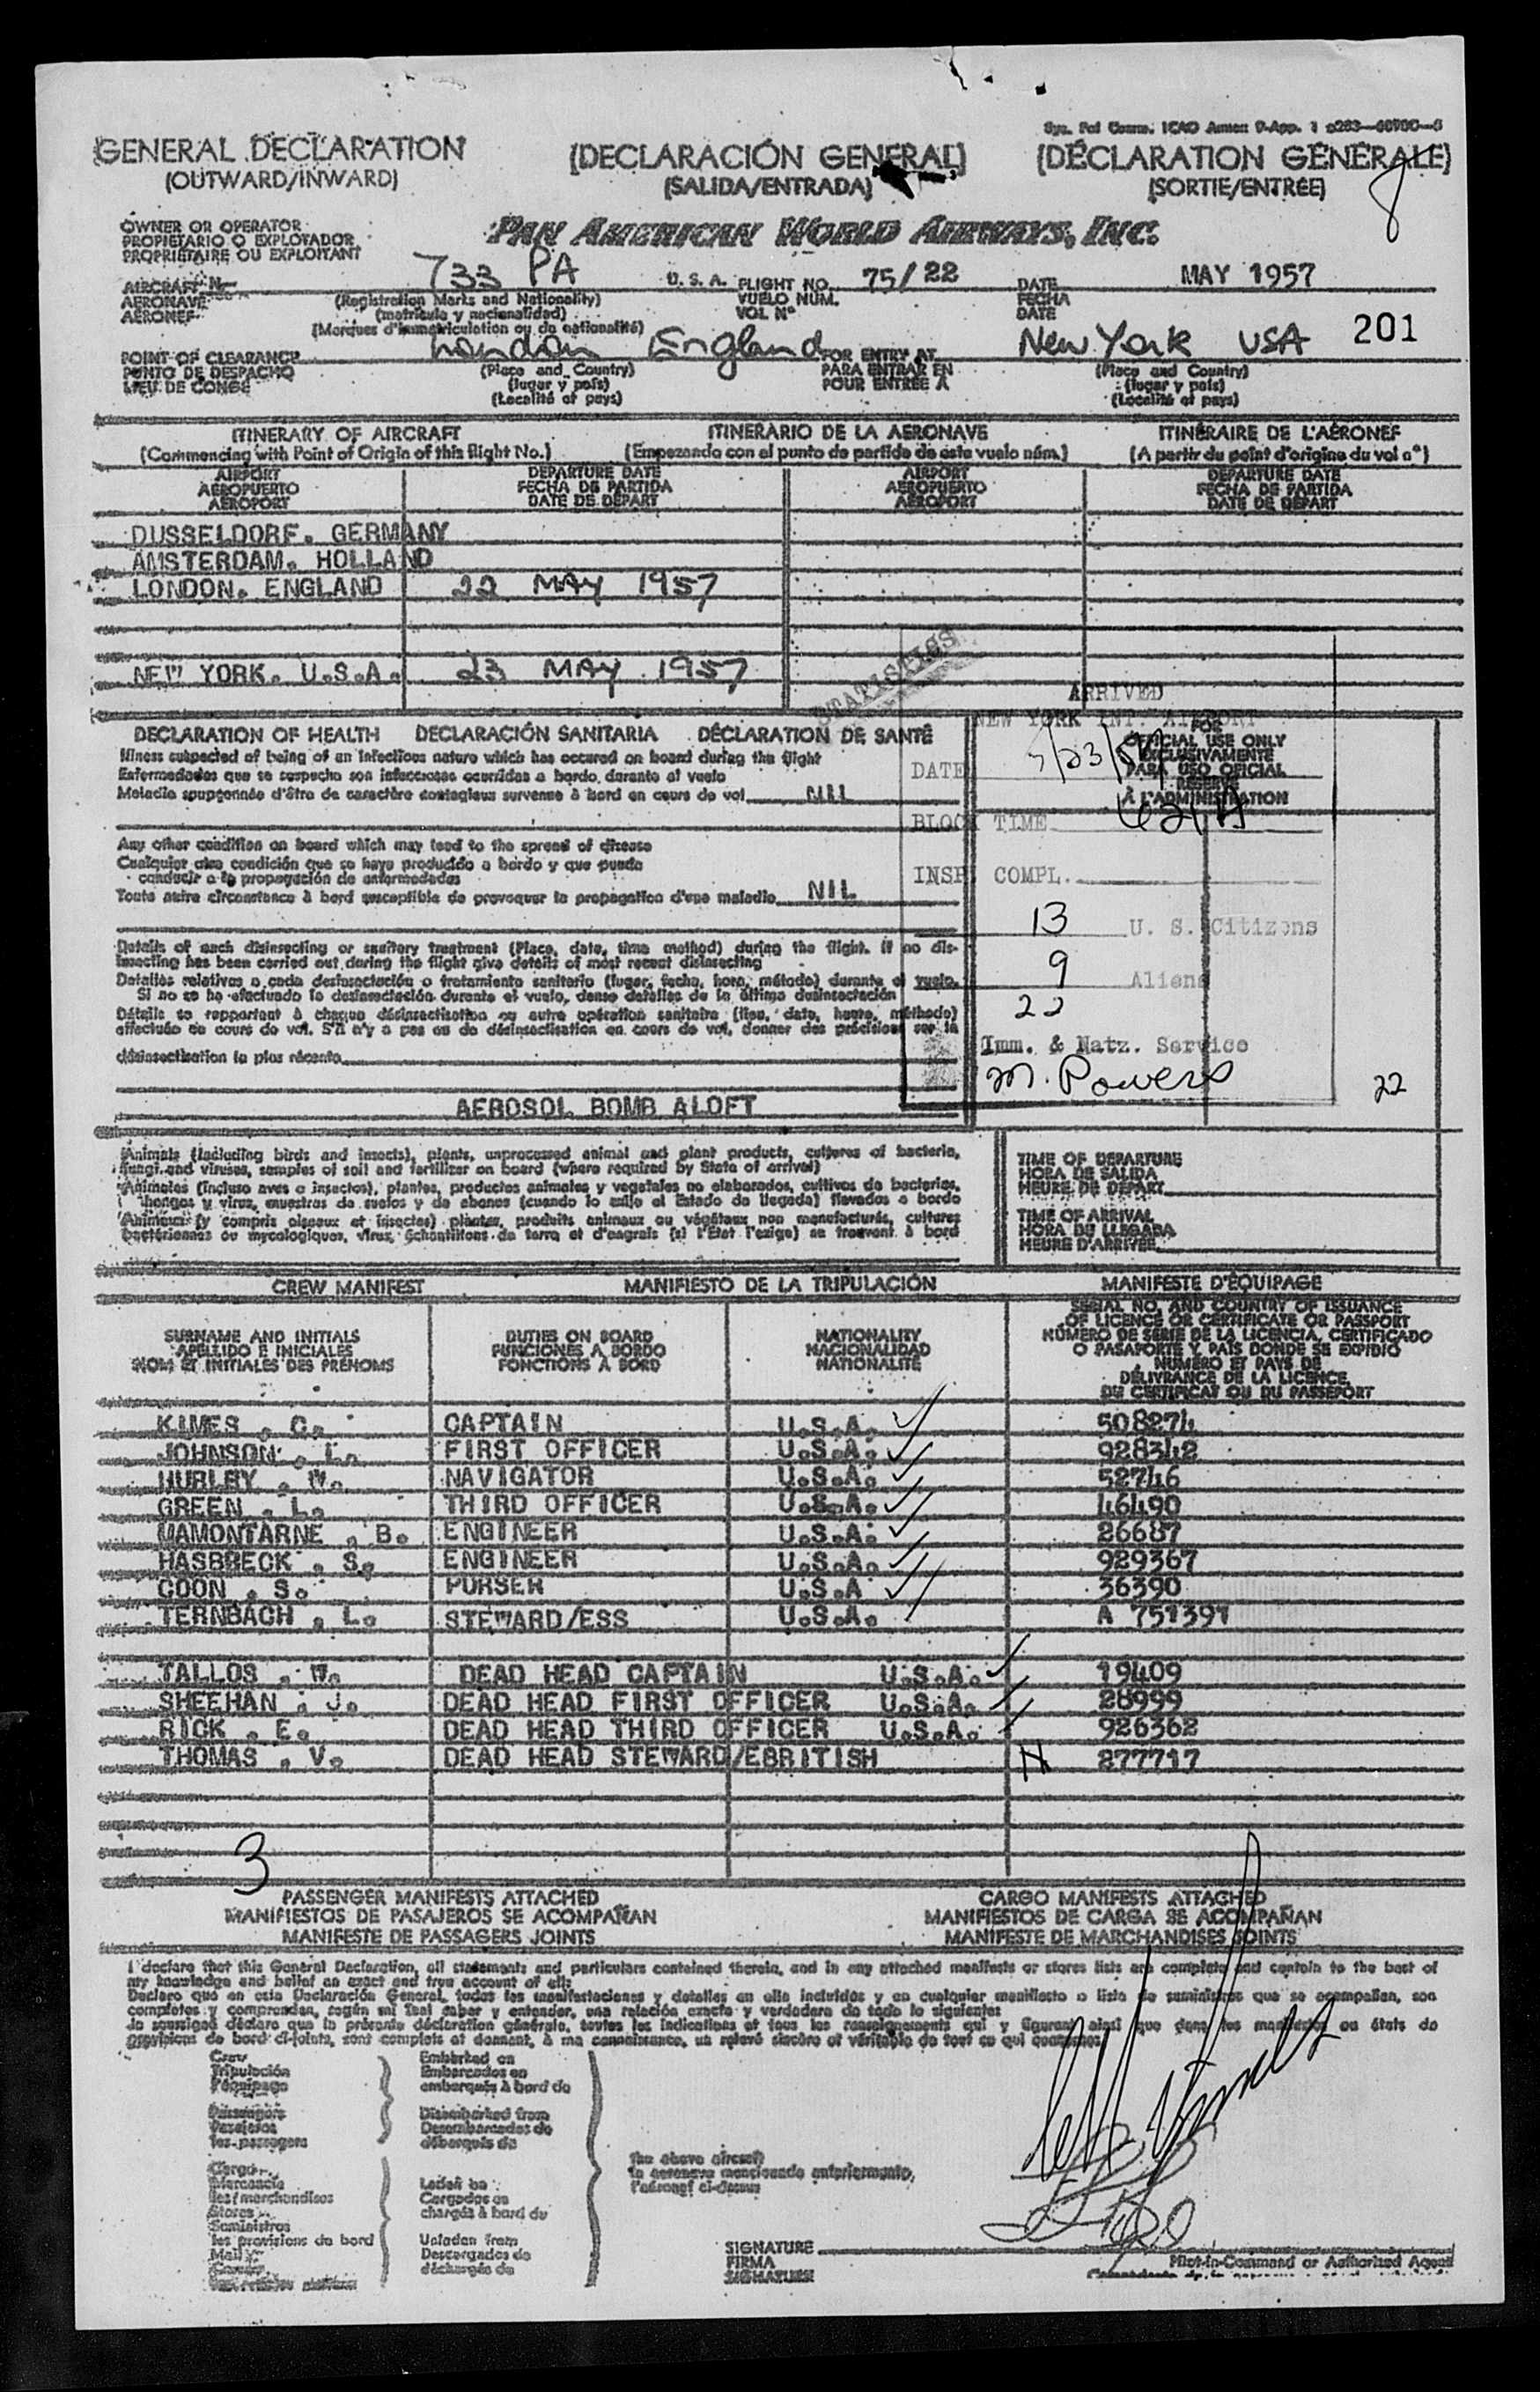 Sys. Pat Comm. ICAO Annex 9-App. 1
GENERAL DECLARATION (DECLARACIÓN GENERAL) (DÉCLARATION GÉNÉRALE)
(OUTWARD/INWARD) (SALIDA/ENTRADA) (SORTIE/ENTRÉE) 8
OWNER OR OPERATOR
PROPIETARIO O EXPLOTADOR
PROPRIÉTAIRE OU EXPLOITANT
PAN AMERICAN WORLD AIRWAYS, INC.
AIRCRAFT N 733 PA U.S.A. FLIGHT NO. 75/22 DATE MAY 1957
AERONAVE (Registration Marks and Nationality) VUELO NÚM. FECHA
AÉRONEF (matrícula y nacionalidad) VOL Nº DATE
(Marques d'immatriculation ou de nationalité)
201
POINT OF CLEARANCE London England FOR ENTRY AT New York USA
PUNTO DE DESPACHO (Place and Country) PARA ENTRAR EN (Place and Country)
LIEU DE CONGÉ (lugar y país) POUR ENTRÉE À (lugar y país)
(Localité et pays) (Localité et pays)
ITINERARY OF AIRCRAFT ITINERARIO DE LA AERONAVE ITINÉRAIRE DE L'AÉRONEF
(Commencing with Point of Origin of this flight No.) (Empezando con el punto de partida de este vuelo núm.) (A partir du point d'origine du vol nº)
AIRPORT DEPARTURE DATE AIRPORT DEPARTURE DATE
AEROPUERTO FECHA DE PARTIDA AEROPUERTO FECHA DE PARTIDA
AÉROPORT DATE DE DÉPART AÉROPORT DATE DE DÉPART
DUSSELDORF. GERMANY
AMSTERDAM. HOLLAND
LONDON. ENGLAND 22 MAY 1957
NEW YORK. U.S.A. 23 MAY 1957
STATISTICS
ARRIVED
NEW YORK INT. AIRPORT
DATE 5/23/57
BLOCK TIME 621A
INSP. COMPL.
13 U. S. Citizens
9 Aliens
22
Imm. & Natz. Service
M. Powers
22
FOR
OFFICIAL USE ONLY
EXCLUSIVAMENTE
PARA USO OFICIAL
RÉSERVÉ
À L'ADMINISTRATION
DECLARATION OF HEALTH DECLARACIÓN SANITARIA DÉCLARATION DE SANTÉ
Illness suspected of being of an infectious nature which has occured on board during the flight
Enfermedades que se sospecha son infecciosas ocurridas a bordo durante el vuelo
Maladie soupçonnée d'être de caractère contagieux survenue à bord en cours de vol NIL
Any other condition on board which may lead to the spread of disease
Cualquier otra condición que se haya producido a bordo y que pueda
conducir a la propagación de enfermedades
Toute autre circonstance à bord susceptible de provoquer la propagation d'une maladie NIL
Details of each disinsecting or sanitary treatment (Place, date, time method) during the flight. If no dis-
insecting has been carried out during the flight give details of most recent disinsecting
Detalles relativos a cada desinsectación o tratamiento sanitario (lugar, fecha, hora, método) durante el vuelo.
Si no se ha efectuado la desinsectación durante el vuelo, dense detalles de la última desinsectación
Détails se rapportant à chaque désinsectisation ou autre opération sanitaire (lieu, date, heure, méthode)
effectuée en cours de vol. S'il n'y a pas eu de désinsectisation en cours de vol, donner des précisions sur la
désinsectisation la plus récente
AEROSOL BOMB ALOFT
Animals (including birds and insects), plants, unprocessed animal and plant products, cultures of bacteria,
fungi and viruses, samples of soil and fertilizer on board (where required by State of arrival)
Animales (incluso aves e insectos), plantas, productos animales y vegetales no elaborados, cultivos de bacterias,
hongos y virus, muestras de suelos y de abonos (cuando lo exija el Estado de llegada) llevados a bordo
Animaux (y compris oiseaux et insectes) plantes, produits animaux ou végétaux non manufacturés, cultures
bactériennes ou mycologiques, virus, échantillons de terre et d'engrais (si l'État l'exige) se trouvant à bord
TIME OF DEPARTURE
HORA DE SALIDA
HEURE DE DÉPART
TIME OF ARRIVAL
HORA DE LLEGADA
HEURE D'ARRIVÉE
CREW MANIFEST MANIFIESTO DE LA TRIPULACIÓN MANIFESTE D'ÉQUIPAGE
SURNAME AND INITIALS DUTIES ON BOARD NATIONALITY
APELLIDO E INICIALES FUNCIONES A BORDO NACIONALIDAD
NOM ET INITIALES DES PRÉNOMS FONCTIONS À BORD NATIONALITÉ
SERIAL NO. AND COUNTRY OF ISSUANCE
OF LICENCE OR CERTIFICATE OR PASSPORT
NÚMERO DE SERIE DE LA LICENCIA, CERTIFICADO
O PASAPORTE Y PAÍS DONDE SE EXPIDIÓ
NUMÉRO ET PAYS DE
DÉLIVRANCE DE LA LICENCE,
DU CERTIFICAT OU DU PASSEPORT
KIMES . C. CAPTAIN U.S.A. 508274
JOHNSON . L. FIRST OFFICER U.S.A. 928342
HURLEY . W. NAVIGATOR U.S.A. 52746
GREEN . L. THIRD OFFICER U.S.A. 46490
MAMONTARNE . B. ENGINEER U.S.A. 26687
HASBRECK . S. ENGINEER U.S.A. 929367
COON . S. PURSER U.S.A 36390
TERNBACH . L. STEWARD/ESS U.S.A. A 751391
TALLOS . W. DEAD HEAD CAPTAIN U.S.A. 19409
SHEEHAN . J. DEAD HEAD FIRST OFFICER U.S.A. 28999
RICK . E. DEAD HEAD THIRD OFFICER U.S.A. 926362
THOMAS . V. DEAD HEAD STEWARD/EBRITISH 277717
3
PASSENGER MANIFESTS ATTACHED CARGO MANIFESTS ATTACHED
MANIFIESTOS DE PASAJEROS SE ACOMPAÑAN MANIFIESTOS DE CARGA SE ACOMPAÑAN
MANIFESTE DE PASSAGERS JOINTS MANIFESTE DE MARCHANDISES JOINTS
I declare that this General Declaration, all statements and particulars contained therein, and in any attached manifests or stores lists are complete and contain to the best of
my knowledge and belief an exact and true account of all:
Declaro que en esta Declaración General, todas las manifestaciones y detalles en ella incluidos y en cualquier manifiesto o lista de suministros que se acompañan, son
completos y comprenden, según mi leal saber y entender, una relación exacta y verdadera de todo lo siguiente:
Je soussigné déclare que la présente déclaration générale, toutes les indications et tous les renseignements qui y figurent ainsi que dans les manifestes ou états de
provisions de bord ci-joints, sont complets et donnent, à ma connaissance, un relevé sincère et véritable de tout ce qui concerne:
Crew Embarked on
Tripulación Embarcados en
l'équipage embarqués à bord de
Passengers Disembarked from
Pasajeros Desembarcados de
les passagers débarqués de
The above aircraft
la aeronave mencionada anteriormente,
l'aéronef ci-dessus
Cargo
Mercancía Laden on
les marchandises Cargados en
Stores chargés à bord de
Suministros
les provisions de bord Unladen from
Mail Descargados de
Correo déchargés de
SIGNATURE
FIRMA Pilot-in-Command or Authorized Agent
SIGNATURE